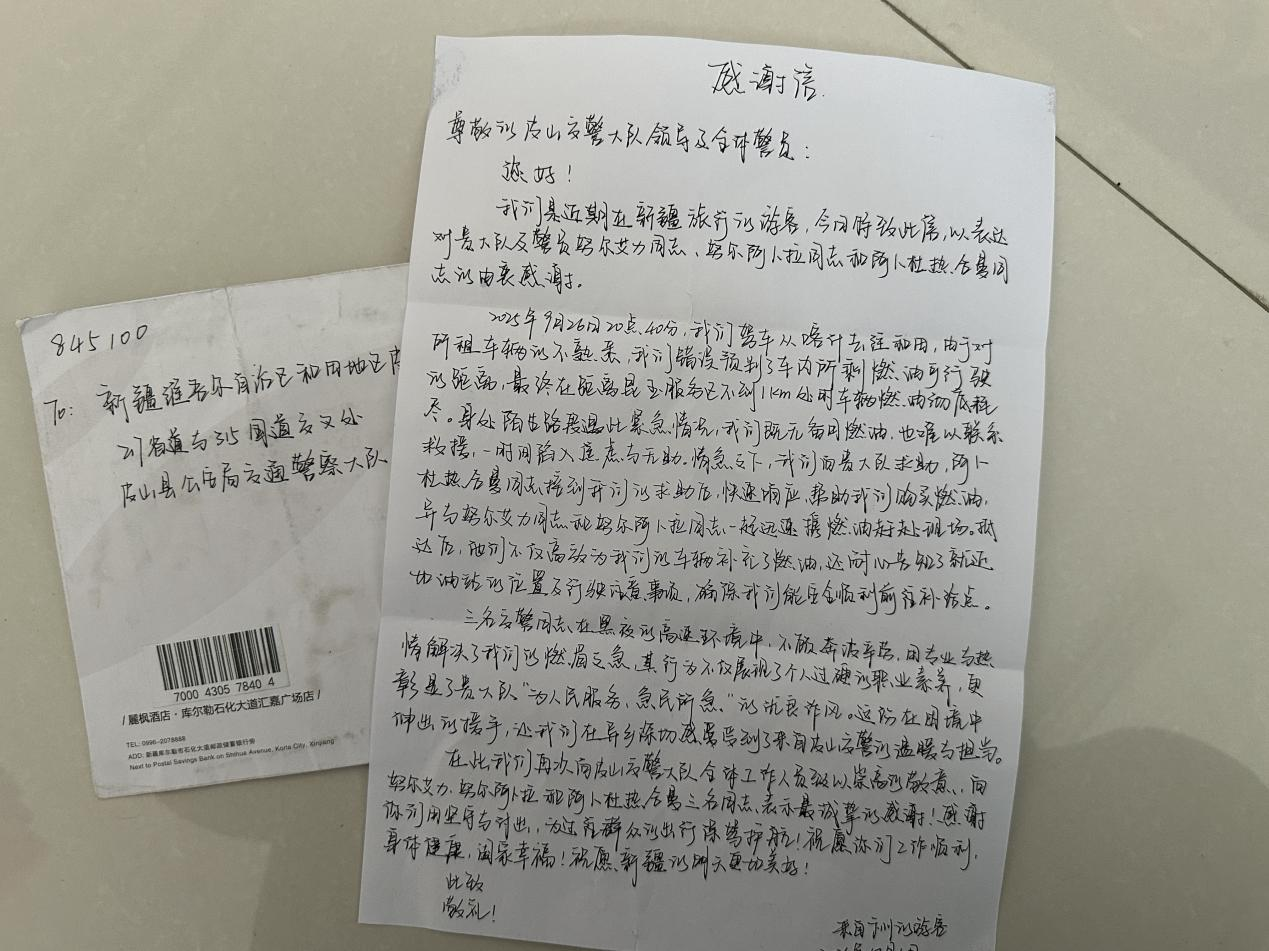 感谢信
尊敬的皮山交警大队领导及全体警员：
您好！
我们是近期在新疆旅行的游客，今日特致此信，以表达
对贵大队及警员努尔艾力同志、努尔阿卜拉同志和阿卜杜热合曼同
志的由衷感谢。
2025年9月26日20点40分，我们驾车从喀什去往和田，由于对
所租车辆的不熟悉，我们错误预判了车内所剩燃油可行驶
的距离，最终在距离昆玉服务区不到1km处时车辆燃油彻底耗
尽。身处陌生路段遇此紧急情况，我们既无备用燃油，也难以联系
救援，一时间陷入焦虑与无助。情急之下，我们向贵大队求助，阿卜
杜热合曼同志接到我们的求助后，快速响应，帮助我们购买燃油，
并与努尔艾力同志和努尔阿卜拉同志一起迅速携燃油赶赴现场。抵
达后，他们不仅高效为我们的车辆补充了燃油，还耐心告知了就近
加油站的位置及行驶注意事项，确保我们能安全顺利前往补给点。
三名交警同志在黑夜的高速环境中，不顾奔波辛劳，用专业与热
情解决了我们的燃眉之急，其行为不仅展现了个人过硬的职业素养，更
彰显了贵大队“为人民服务，急民所急”的优良作风。这份在困境中
伸出的援手，让我们在异乡深切感受到了来自皮山交警的温暖与担当。
在此我们再次向皮山交警大队全体工作人员致以崇高的敬意，向
努尔艾力、努尔阿卜拉和阿卜杜热合曼三名同志表示最诚挚的感谢！感谢
你们用坚守与付出，为过往群众的出行保驾护航！祝愿你们工作顺利，
身体健康，阖家幸福！祝愿新疆的明天更加美好！
此致
敬礼！
来自 的游客
845100
To: 新疆维吾尔自治区和田地区皮
211省道与315国道交叉处
皮山县公安局交通警察大队
7000 4305 7840 4
/ 麗枫酒店·库尔勒石化大道汇嘉广场店 /
TEL: 0996-2078888
ADD: 新疆库尔勒市石化大道邮政储蓄银行旁
Next to Postal Savings Bank on Shihua Avenue, Korla City, Xinjiang